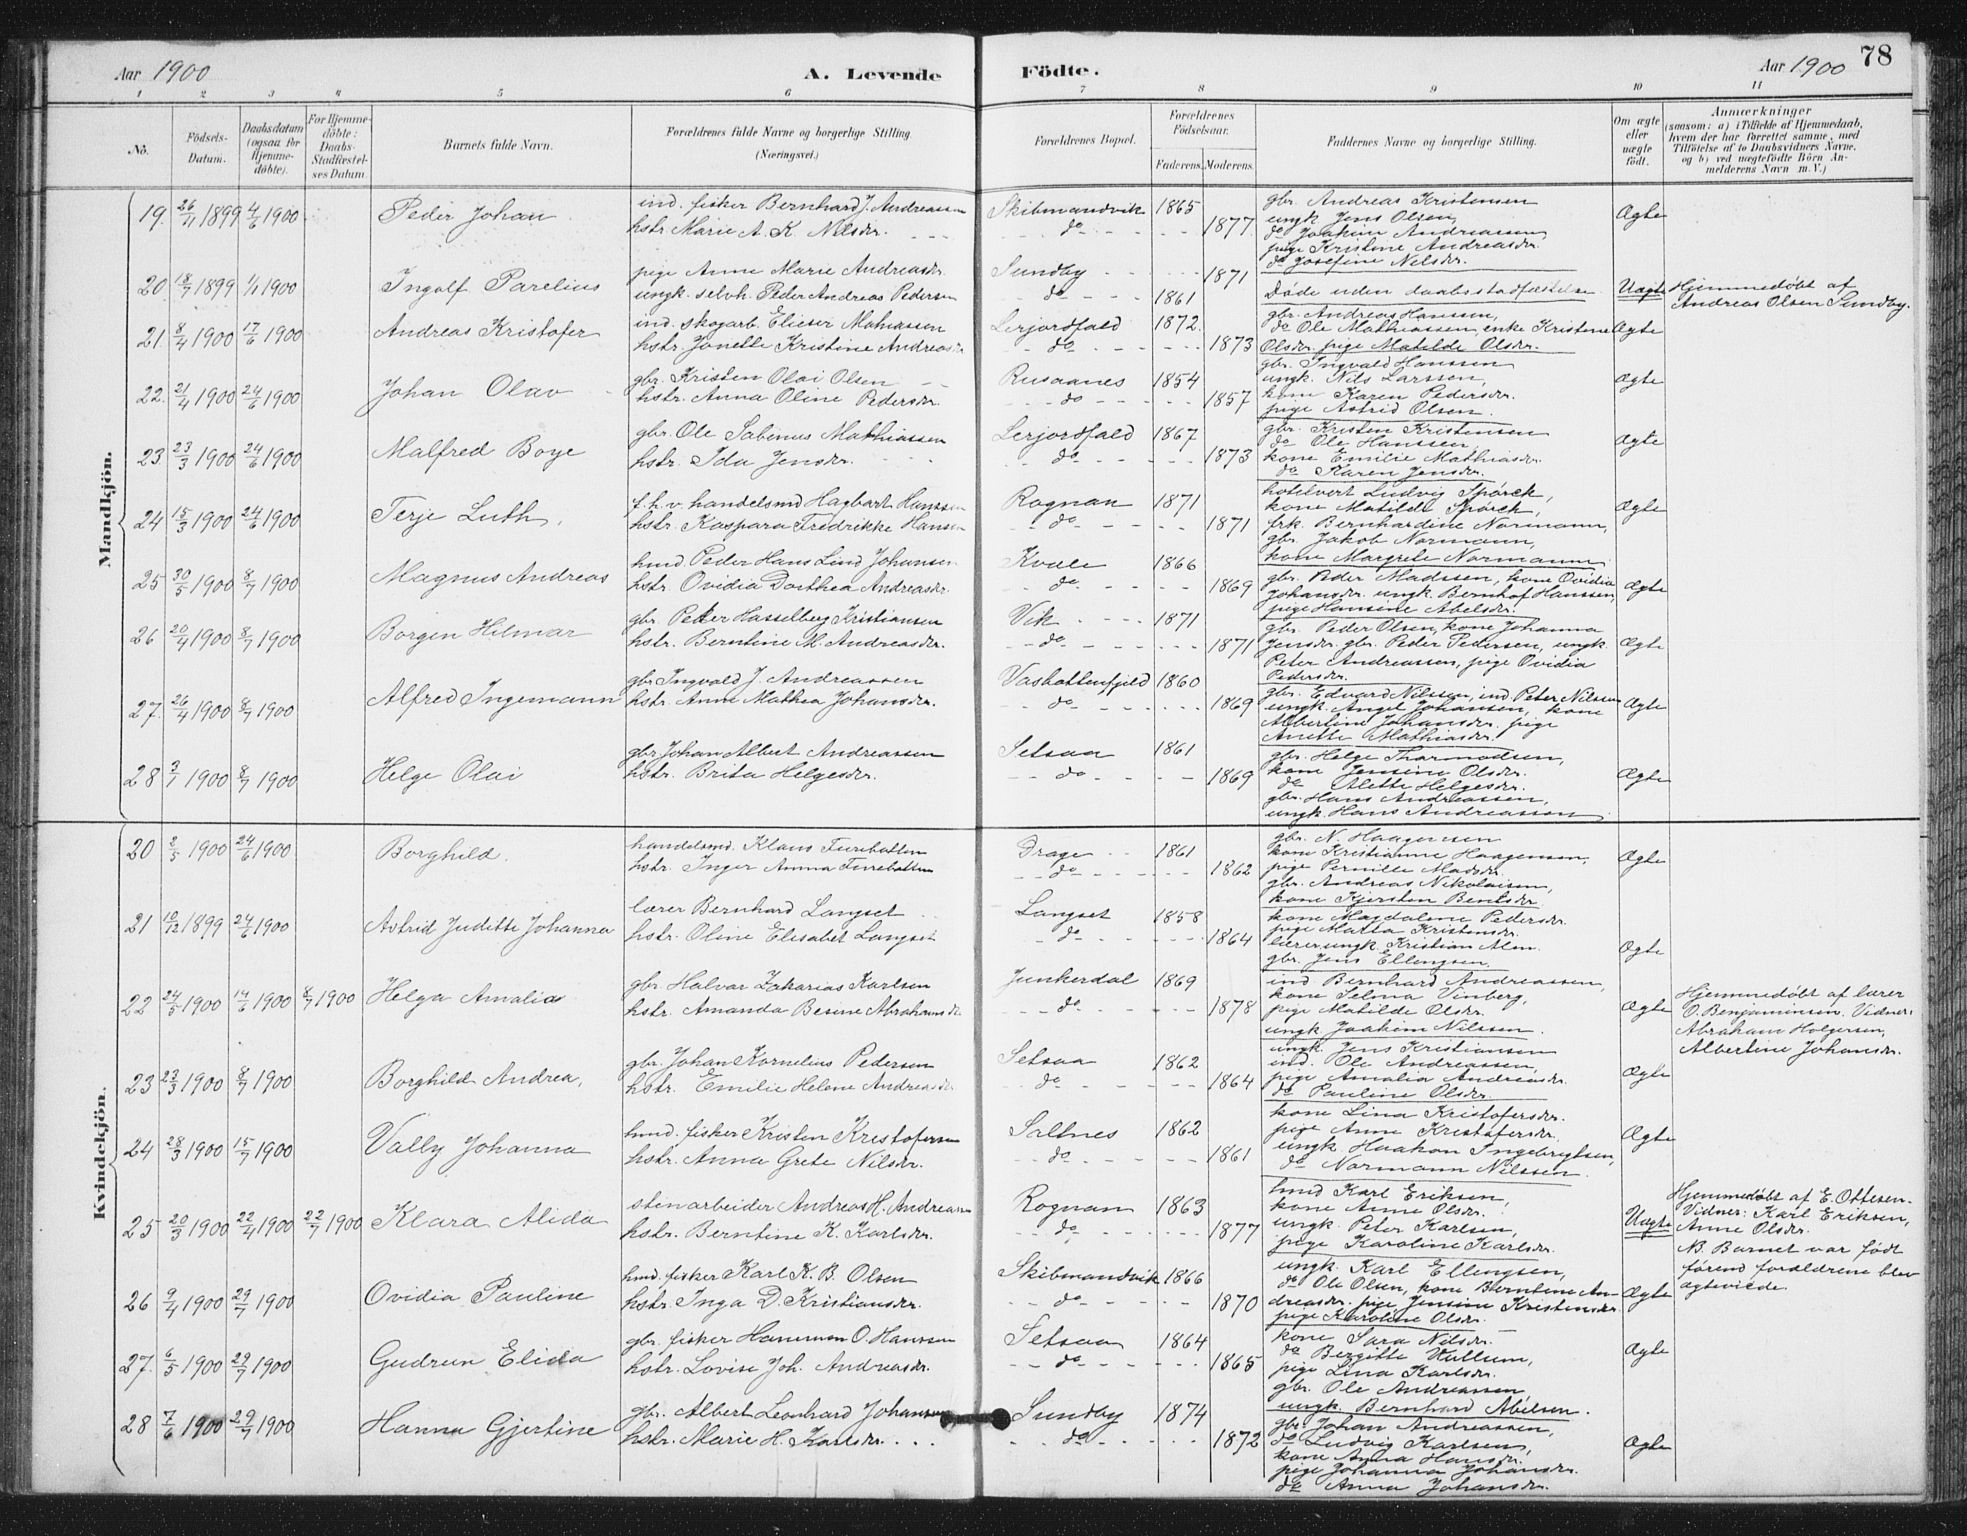 Aar 1900
A. Levende
Födte.
Aar 1900
78
1 2 3 4 5 6 7 8 9 10 11
No.
Födsels-Datum.
Daabsdatum (ogsaa for Hjemmedöbte).
For Hjemmedöbte: Daabs-Stadfæstelses Datum
Barnets fulde Navn.
Forældrenes fulde Navne og borgerlige Stilling. (Næringsvei.)
Forældrenes Bopæl.
Forældrenes Födselsaar.
Faderens. Moderens.
Faddernes Navne og borgerlige Stilling.
Om ægte eller uægte födt.
Anmærkninger
(saasom: a) i Tilfælde af Hjemmedaab, hvem der har forrettet samme, med Tilföielse af to Daabsvidners Navne, og b) ved uægtefödte Börn Anmelderens Navn m. V.)
Mandkjön.
19. 26/11 1899 4/6 1900 Peder Johan
ind. fisker Bernhard J. Andreassen
hstr Marie A. K. Nilsdr.
Skibmandvik 1865
do 1877
gbr. Andreas Kristensen
ungk Jens Olsen,
do Joakim Andreassen,
pige Kristine Andreasdr.
do Josefine Nilsdr.
Ægte
20. 18/7 1899 1/1 1900 Ingolf Parelius
pige Anne Marie Andreasdr.
ungk. selvh. Peder Andreas Pedersen
Sundby 1871
do 1861
Døde uden daabsstadfæstelse
Uægte
Hjemmedøbt af
Andreas Olsen Sundby.
21. 8/4 1900 17/6 1900 Andreas Kristofer
ind. skogarb. Elieser Mathiassen
hstr. Jonette Kristine Andreasdr
Lerjordfald 1872
do 1873
gbr. Andreas Hanssen,
do Ole Mathiassen, enke Kristine
Olsdr. pige Matilde Olsdr.
Ægte
22. 21/4 1900 24/6 1900 Johan Olav
gbr. Kristen Olai Olsen
hstr. Anna Oline Pedersdr.
Rusaanes 1854
do 1857
gbr. Ingvald Hanssen
ungk. Nils Larssen,
kone Karen Pedersdr.
pige Astrid Olsen.
Ægte
23. 23/3 1900 24/6 1900 Malfred Boye
gbr. Ole Sabinus Mathiassen
hstr. Ida Jensdr.
Lerjordfald 1867
do 1873
gbr. Kristen Kristensen
do Ole Hanssen,
kone Emilie Mathiasdr.
do Karen Jensdr.
Ægte
24 15/3 1900 24/6 1900 Terje Luth.
f. h. v. handelsmd Hagbart Hanssen
hstr. Kaspara Fredrikke Hansen
Rognan 1871
do 1871
hotelvert Ludvig Spörck,
kone Matilde Spörck,
frk. Bernhardine Normann,
gbr. Jakob Normann,
kone Margrete Normann
Ægte
25 30/5 1900 8/7 1900 Magnus Andreas
hmd. Peder Hans Lind Johansen
hstr. Ovidia Dorthea Andreasdr.
Kvale 1866
do 1869
gbr. Peder Madssen, kone Ovidia
Johansdr. ungk. Bernhof Hanssen,
pige Hansine Abelsdr.
Ægte
26 20/4 1900 8/7 1900 Borgen Hilmar
gbr. Peder Hasselberg Kristiansen
hstr. Berntine M. Andreasdr.
Vik 1871
do 1871
gbr. Peder Olsen, kone Johanna
Jensdr. gbr. Peder Pedersen, ungk
Peter Andreassen, pige Ovidia
Pedersdr.
Ægte
27. 26/4 1900 8/7 1900 Alfred Ingemann
gbr. Ingvald J. Andreassen
hstr. Anne Mathea Johansdr.
Vasbottenfjeld 1860
do 1869
gbr. Edvard Nilssen, ind. Peter Nilssen
ungk. Angel Johansen, kone
Albertine Johansdr. pige
Anette Mathiasdr.
Ægte
28 2/1 1900 8/7 1900 Helge Olai
gbr Johan Albert Andreassen
hstr. Brita Helgesdr.
Setsaa 1861
do 1869
gbr. Helge Thormodsen,
kone Jensine Olsdr.
do Alette Helgesdr.
gbr. Hans Andreassen,
ungk. Hans Andreassen
Ægte
Kvindekjön.
20 2/5 1900 24/6 1900 Borghild.
handelsmd. Klaus Furebotten
hstr. Inger Anna Furebotten
Drage 1861
do 1862
gbr. N. Haagensen
kone Kristianne Haagensen,
pige Pernille Madsdr.
gbr. Andreas Nikolaisen,
kone Kjersten Bentsdr.
Ægte
21 10/12 1899 24/6 1900 Astrid Juditte Johanna
lærer Bernhard Langset
hstr. Oline Elisabet Langset
Langset 1858
do 1864
kone Magdalene Pedersdr.
pige Maria Kristensdr.
lærer ungk. Kristian Alm.
gbr. Jens Ellengsen
Ægte
22 24/5 1900 14/6 1900 8/7 1900 Helga Amalia
gbr. Halvar Zakarias Karlsen
hstr. Amanda Besine Abrahamsdr
Junkerdal 1869
do 1878
ind Bernhard Andreassen,
kone Selma Vinberg,
pige Matilde Olsdr.
ungk Joakim Nilssen.
Ægte
Hjemmedøbt af lærer
O. Benjaminsen. Vidner:
Abraham Holgersen,
Albertine Johansdr.
23 23/3 1900 8/7 1900 Borghild Andrea,
gbr. Johan Kornelius Pedersen
hstr. Emilie Helene Andreasdr
Setsaa 1862
do 1864
ungk. Jens Kristiansen
ind. Ole Andreassen,
pige Amalia Andreasdr.
do Pauline Olsdr
Ægte
24 28/3 1900 15/7 1900 Vally Johanna
hmd. fisker Kristen Kristofersen
hstr. Anna Grete Nilsdr.
Saltnes 1862
do 1861
kone Lina Kristofersdr.
pige Anne Kristofersdr.
ungk. Haakon Ingebrigtsen,
do Normann Nilssen.
Ægte
25 20/3 1900 22/4 1900 22/7 1900 Klara Alida
stenarbeider Andreas H. Andreasen
hstr. Berntine K. Karlsdr.
Rognan 1863
do 1877
hmd Karl Eriksen,
kone Anne Olsdr.
ungk. Peter Karlsen,
pige Karoline Karlsdr.
Uægte
Hjemmedøbt af E. Ottesen.
Vidner: Karl Eriksen,
Anne Olsdr.
NB. Barnet var født
førend forældrene blev
ægteviede.
26 9/4 1900 29/7 1900 Ovidia Pauline
hmd. fisker Karl K. B. Olsen
hstr. Inga D. Kristiansdr.
Skibmandvik 1866
do 1870
ungk. Karl Ellengsen,
do Ole Olsen, kone Berntine An-
dreasdr. pige Jensine Kristensdr
pige Karoline Olsdr.
Ægte
27. 6/5 1900 29/7 1900 Gudrun Elida
gbr. fisker Hammon O. Hanssen
hstr. Lovise Joh. Andreasdr.
Setsaa 1864
do 1865
kone Sara Nilsdr.
do Bergitte Kullum,
pige Lina Karlsdr.
gbr. Ole Andreassen,
ungk. Bernhard Abelsen.
Ægte
28 7/6 1900 29/7 1900 Hanna Gjertine
gbr. Albert Leonhard Johansen
hstr. Marie H. Karlsdr.
Sundby 1874
do 1872
gbr. Johan Andreassen,
do Ludvig Karlsen,
kone Anna Hansdr.
pige Johanna Johansdr.
do Anna Johansdr.
Ægte